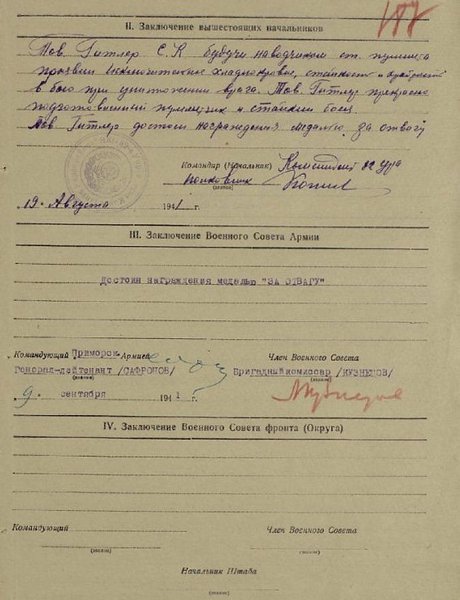 187
II. Заключение вышестоящих начальников
Тов. Гитлер С.К. будучи наводчиком ст. пулемета
проявил исключительное хладнокровие, стойкость и
в бою при уничтожении врага. Тов. Гитлер прекрасно
подготовленный пулеметчик и стойкий боец.
Тов Гитлер достоин награждения медалью за отвагу
Командир (Начальник) Комендант 82 Ура
полковник
(звание)
19. Августа 1941 г.
III. Заключение Военного Совета Армии
Достоин награждения медалью "ЗА ОТВАГУ"
Командующий Приморск. Армией Член Военного Совета
Генерал-лейтенант /САФРОНОВ/ Бригадный комиссар /КУЗНЕЦОВ/
(звание) (звание)
9. сентября 1941 г.
IV. Заключение Военного Совета фронта (Округа)
Командующий Член Военного Совета
(звание) (звание)
Начальник Штаба
(звание)